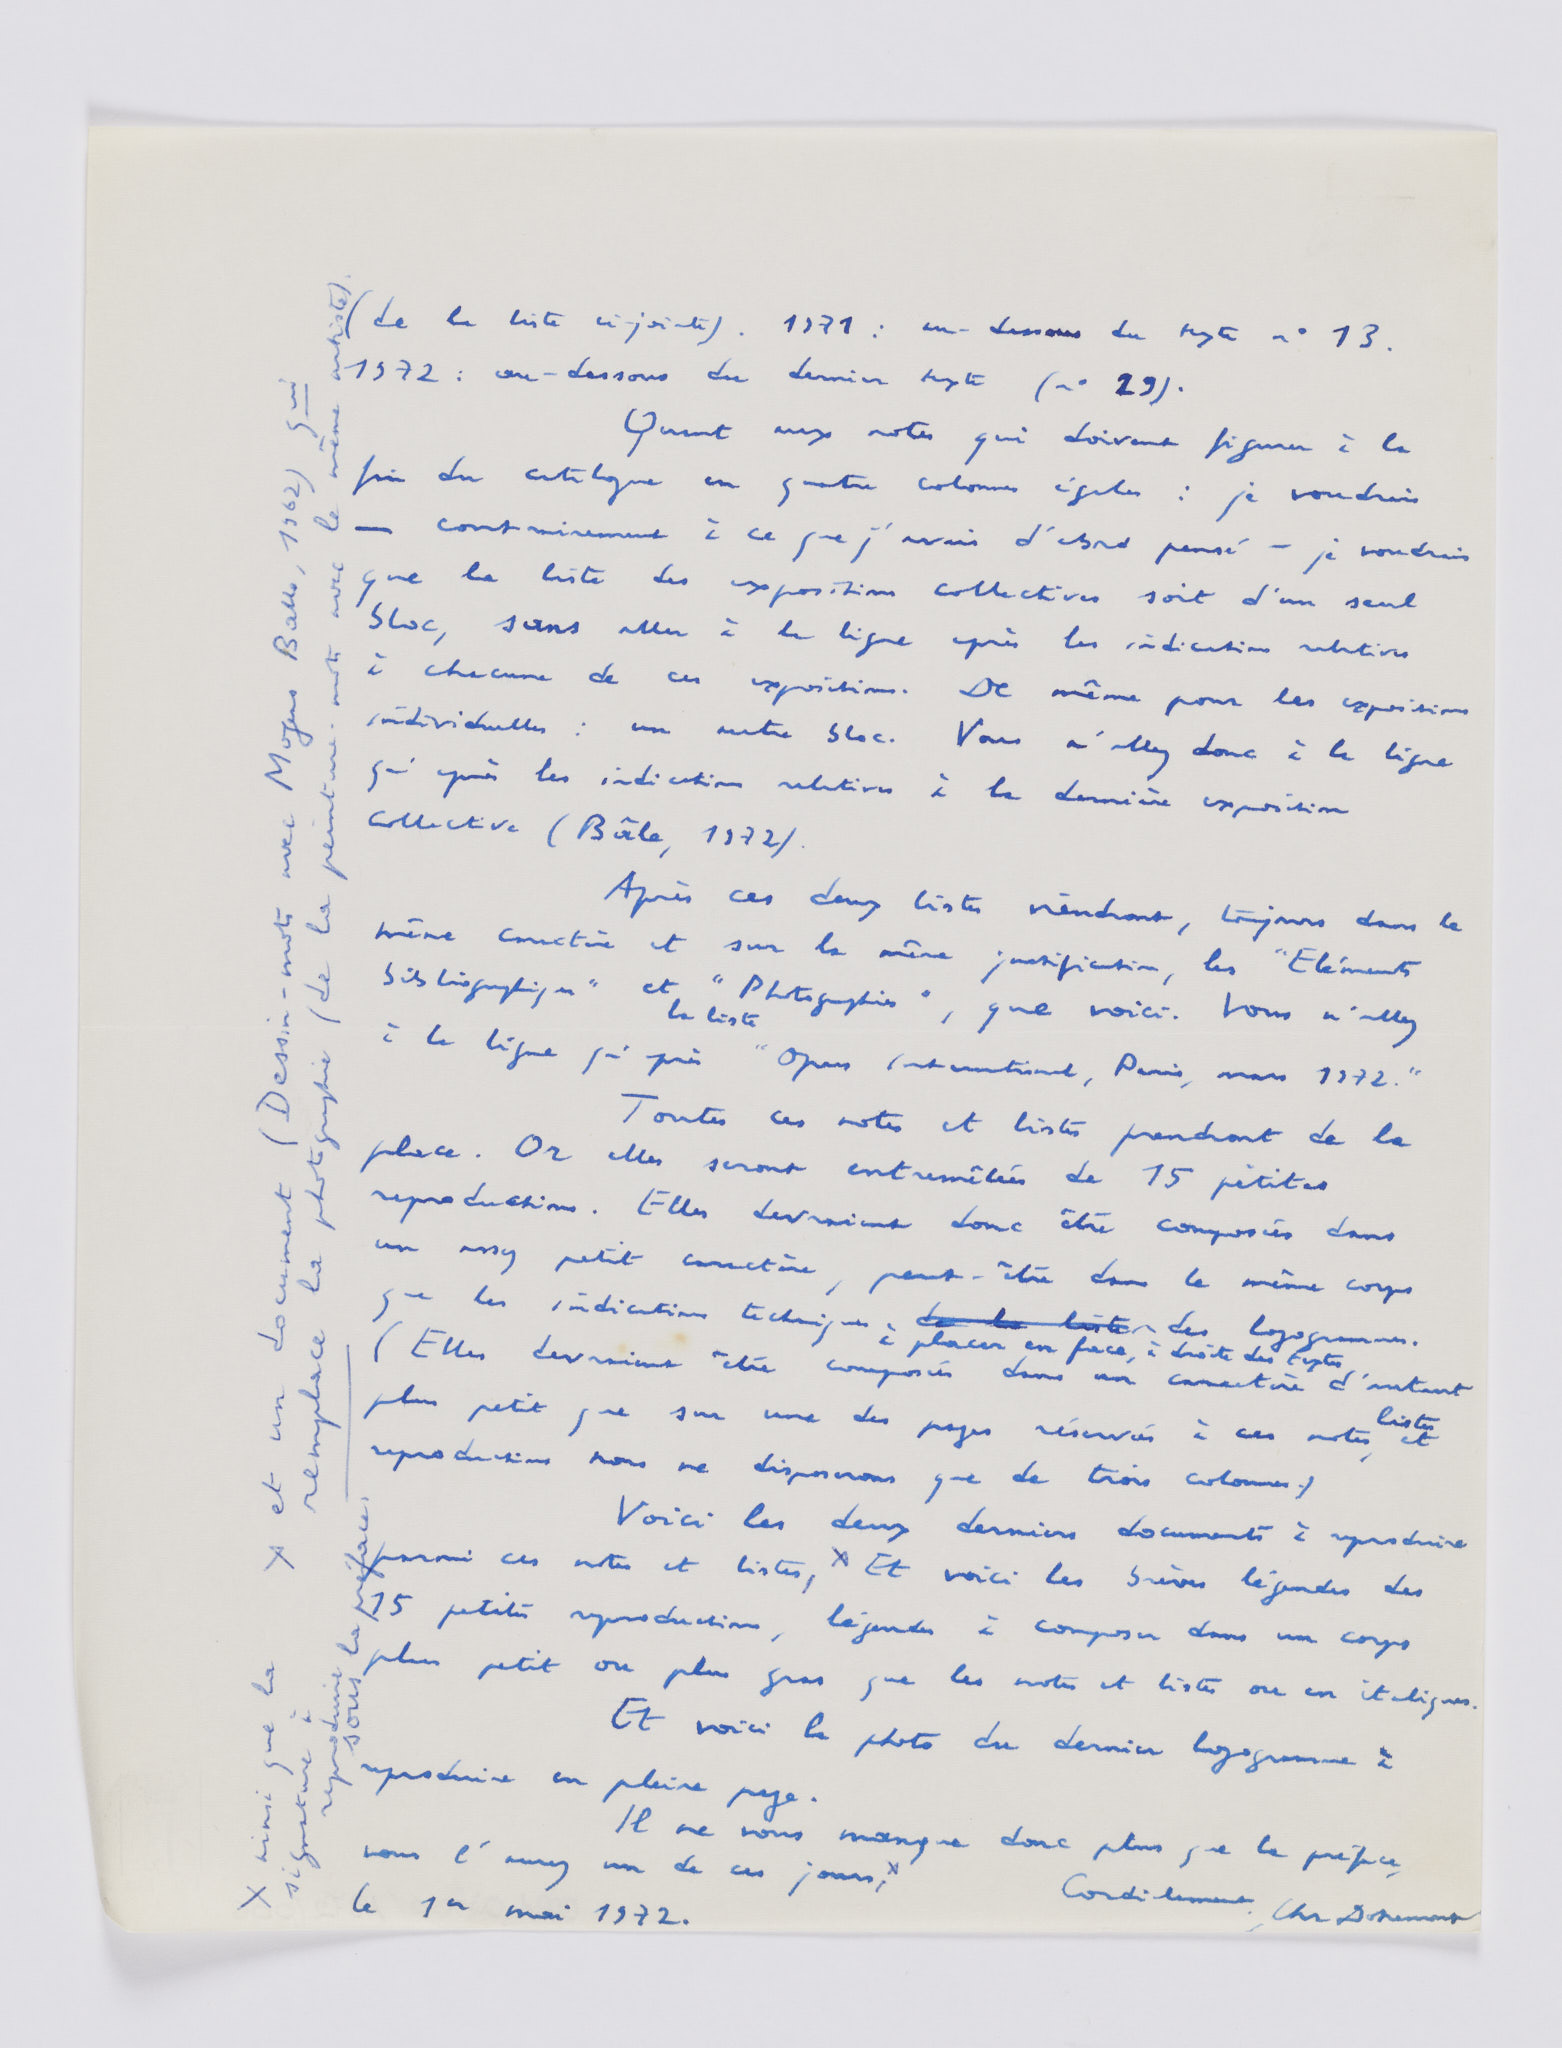 (de la liste ci-jointe). 1971 : au-dessous du texte n° 13.
1972 : au-dessous du dernier texte (n° 29).
Quant aux notes qui doivent figurer à la
fin du catalogue en quatre colonnes égales : je voudrais
— contrairement à ce que j'avais d'abord pensé — je voudrais
que la liste des expositions collectives soit d'un seul
bloc, sans aller à la ligne après les indications relatives
à chacune de ces expositions. De même pour les expositions
individuelles : un autre bloc. Vous n'allez donc à la ligne
qu'après les indications relatives à la dernière exposition
collective (Bâle, 1972).
Après ces deux listes viendront, toujours dans le
même caractère et sur la même justification, les "Eléments
bibliographiques" et "Photographies", que voici. Vous n'allez
la liste
à la ligne qu'après "Opus international, Paris, mars 1972."
Toutes ces notes et listes prendront de la
place. Or elles seront entremêlées de 15 petites
reproductions. Elles devraient donc être composées dans
un assez petit caractère, peut-être dans le même corps
que les indications techniques de la liste des logogrammes.
à placer en face, à droite des textes,
(Elles devraient être composées dans un caractère d'autant
plus petit que sur une des pages réservées à ces notes, listes et
reproductions nous ne disposerons que de trois colonnes.)
Voici les deux derniers documents à reproduire
parmi ces notes et listes, x Et voici les brèves légendes des
15 petites reproductions, légendes à composer dans un corps
plus petit ou plus gras que les notes et listes ou en italiques.
Et voici la photo du dernier logogramme à
reproduire en pleine page.
Il ne vous manque donc plus que la préface,
vous l'aurez un de ces jours, x
Cordialement, Chr Dotremont
le 1er mai 1972.
x et un document (Dessin-mots avec Mogens Balle, 1962) qui
remplace la photographie (de la peinture-mots avec le même artiste).
x ainsi que la
signature à
reproduire
sous la préface.